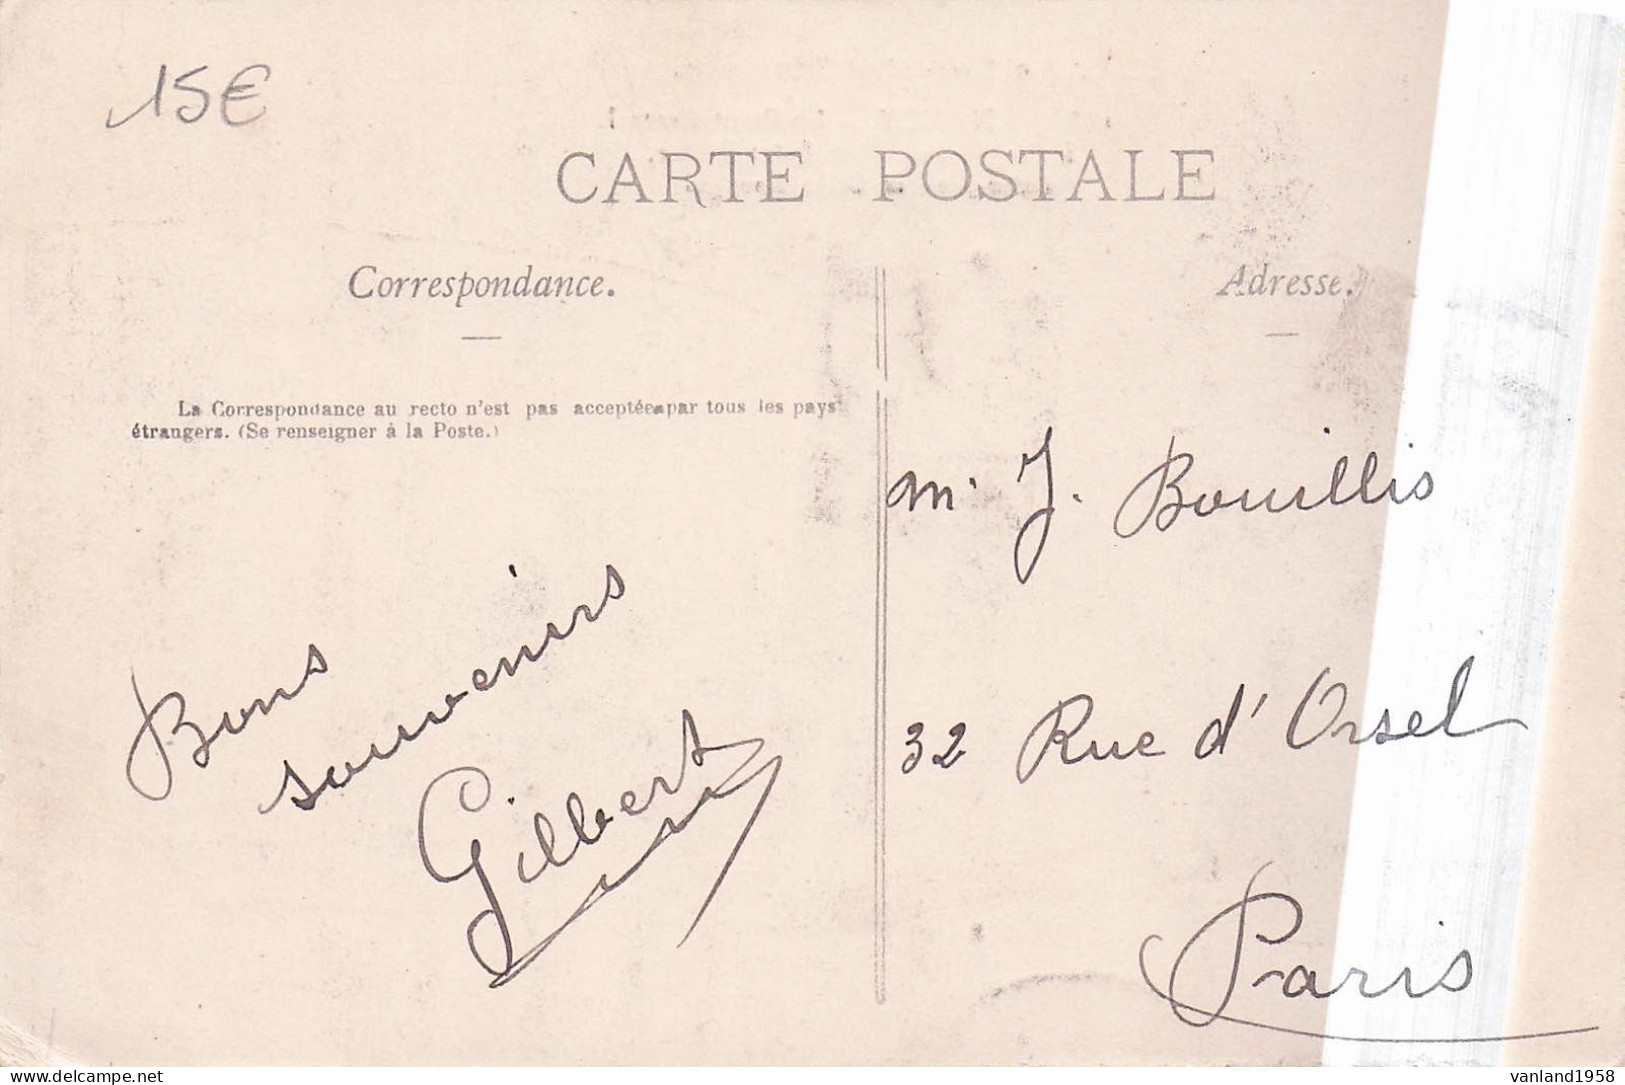 15€
CARTE POSTALE
Correspondance.
Adresse.
La Correspondance au recto n'est pas acceptée par tous les pays
étrangers. (Se renseigner à la Poste.)
Bons
souvenirs
Gilbert
Mr J. Bouillis
32 Rue d'Orsel
Paris
vanland1958